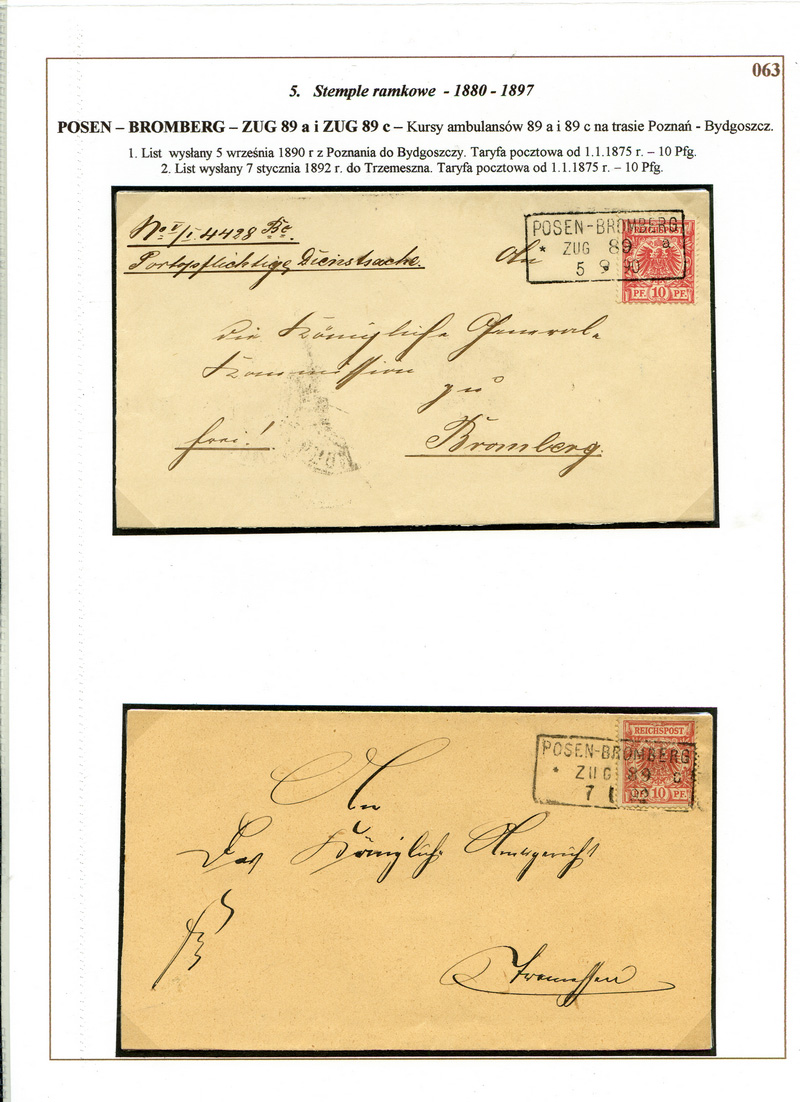 063
5. Stemple ramkowe - 1880 - 1897
POSEN – BROMBERG – ZUG 89 a i ZUG 89 c – Kursy ambulansów 89 a i 89 c na trasie Poznań - Bydgoszcz.
1. List wysłany 5 września 1890 r z Poznania do Bydgoszczy. Taryfa pocztowa od 1.1.1875 r. – 10 Pfg.
2. List wysłany 7 stycznia 1892 r. do Trzemeszna. Taryfa pocztowa od 1.1.1875 r. – 10 Pfg.
POSEN-BROMBERG
* ZUG 89 a
5 9 90
REICHSPOST
PF 10 PF.
No V/I 4428
Portopflichtige Dienstsache.
An
die Königliche General-
Kommission
zu
frei!
Bromberg.
POSEN-BROMBERG
* ZUG 89 c
7 1 92
REICHSPOST
10 PF.
An
Das Königliche Amtsgericht
Tremessen